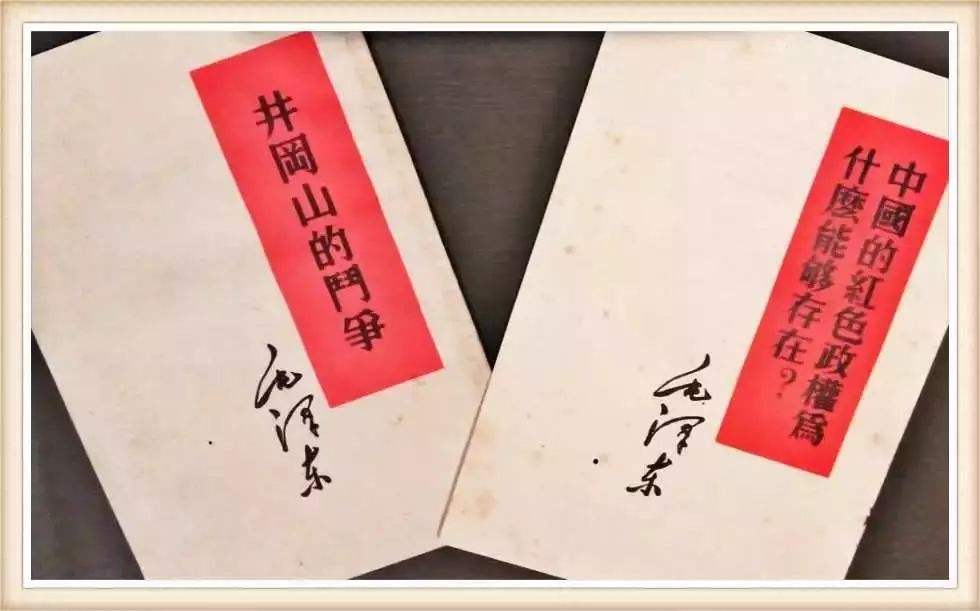 井岡山的鬥爭
毛泽东
中國的紅色政權爲
什麽能够存在？
毛泽东